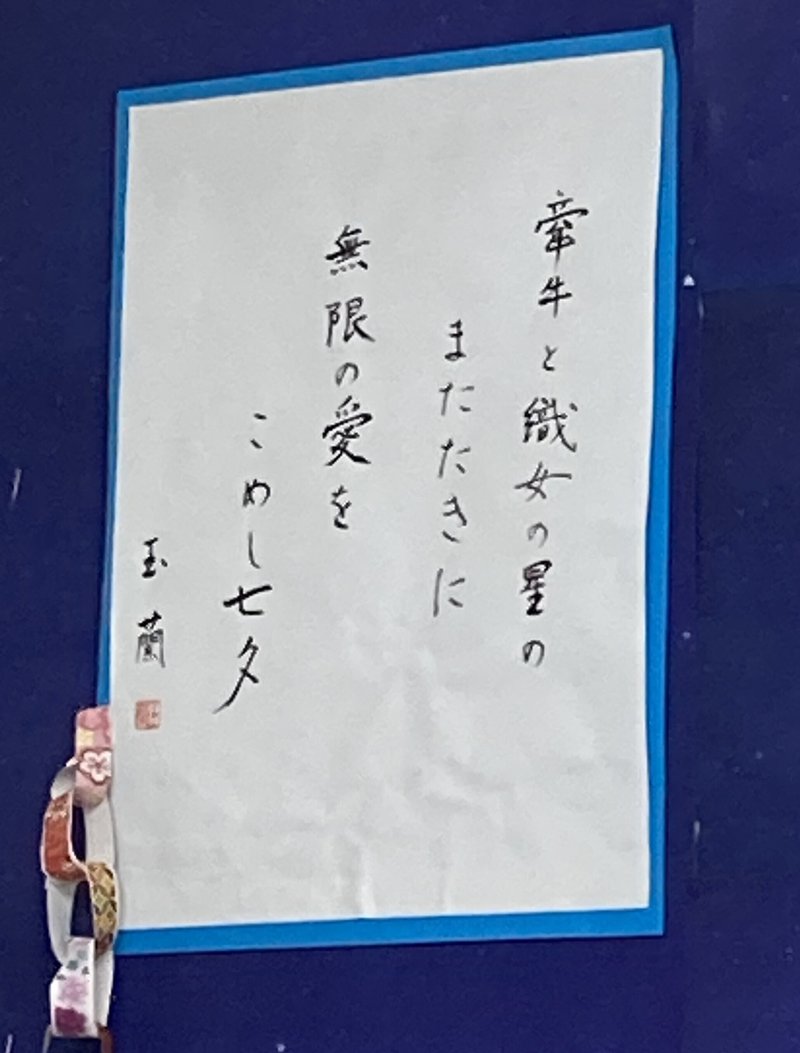 牽牛と織女の星の
またたきに
無限の愛を
こめし七夕
玉蘭